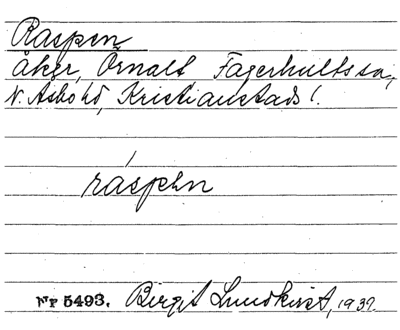 Raspen
åker, Örnalt Fagerhults sn,
N. Åsbo hd, Kristianstads l.
ráspən
Nr 5493. Birgit Lundkvist, 1937.